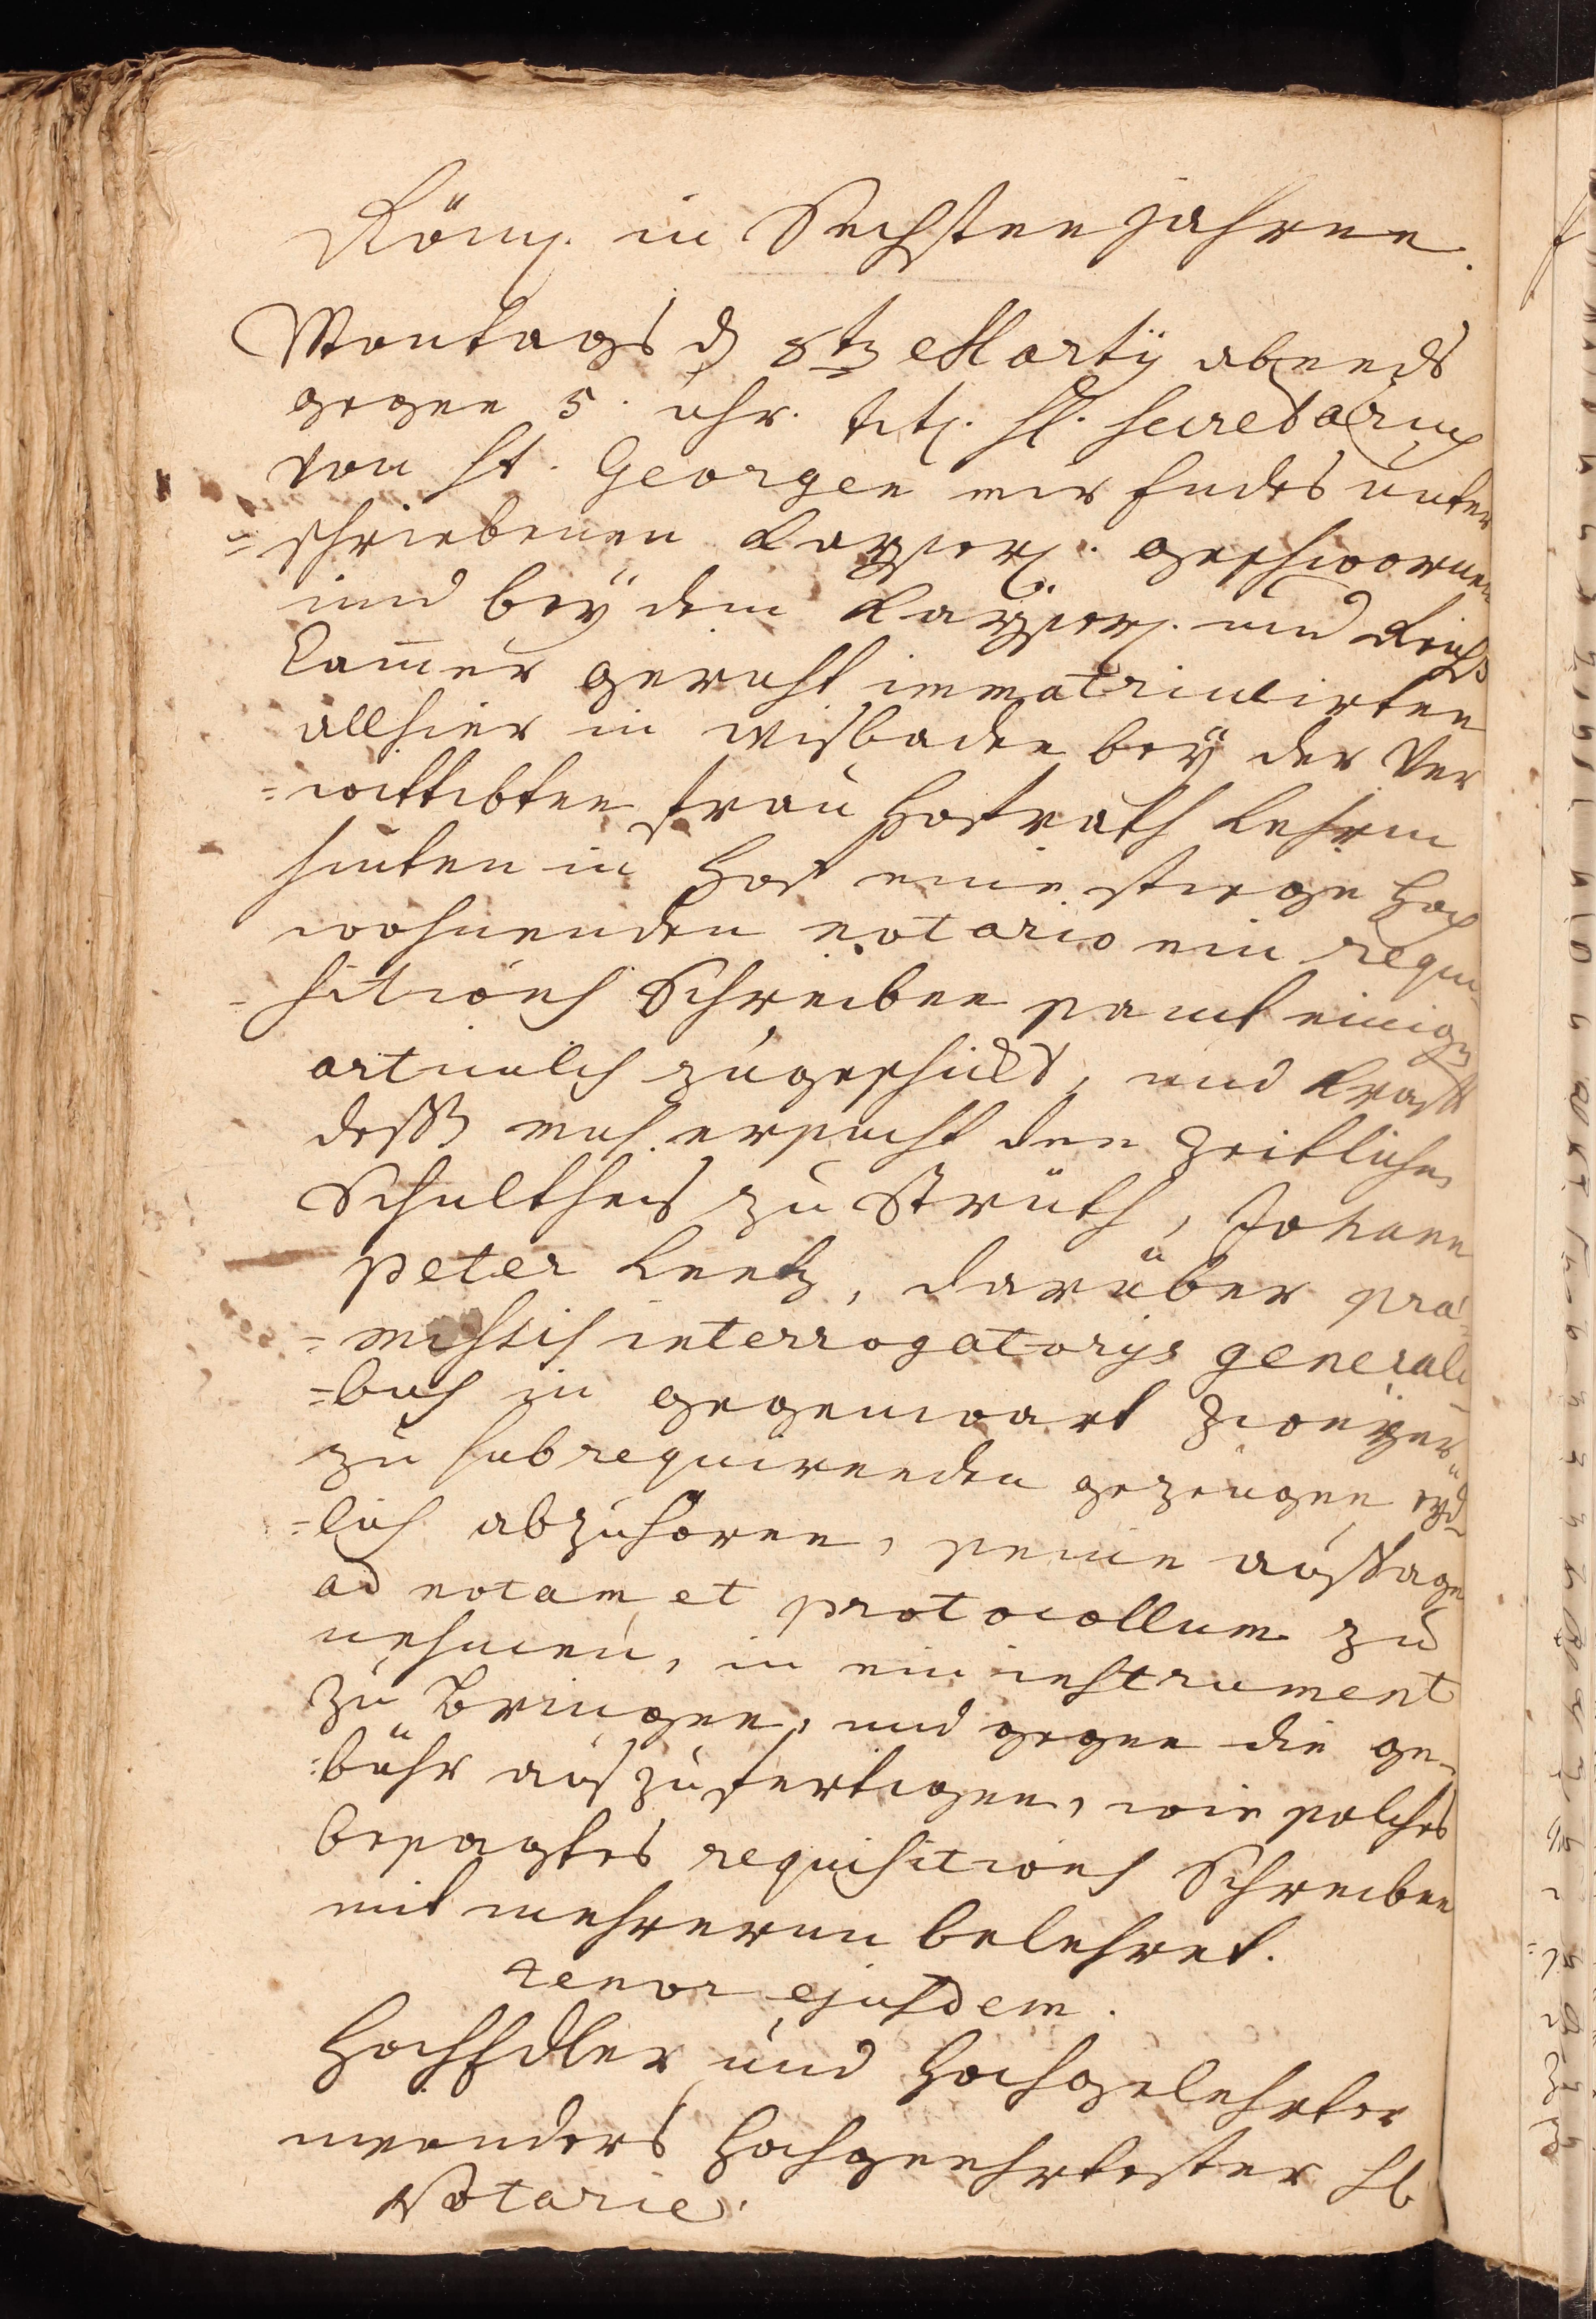 Röm. in Sechsten jahren.
Montags d 8tn Martij abends
gegen 5. uhr. tit. H. Secretarius
von St. Georgen mir Endes unter
=schriebenen Kayserl. geschwornen
und bey dem Kayserl. und Reichs
Cam̄er gericht immatriculirten
allhier in Wisbaden bey der Ver
=wittibten Frau Hofrath Lehrin
hinten in Hof eine stiege hoch
wohnenden notario ein requi-
=sitions Schreiben samt einigen
articuls zugeschickt, und Krafft
desß mich ersucht den Zeitlichen
Schultheis zu Strüth, Johann
Peter Lentz, darüber præ-
=missis interrogatorijs generali-
=bus in gegenwart zweyer
zu subrequirenden gezeugen eyd-
=lich abzuhören, seine aussage
ad notam et protocollum zu
nehmen, in ein instrument
zu bringen, und gegen die ge-
=bühr auszufertigen, wie solches
besagtes requisitions Schreiben
mit mehreren belehret.
tenor ejusdem.
HochEdler und Hochgelehrter
insonders Hochgeehrtester H
Notarie.